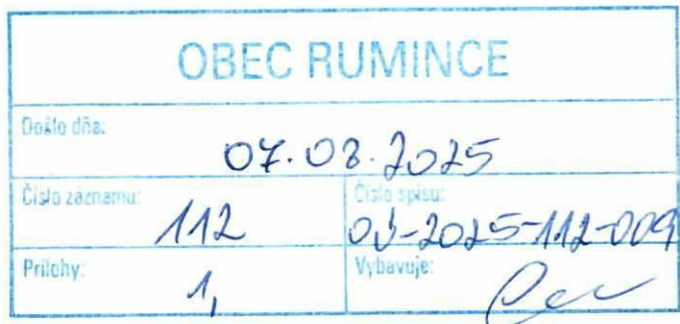 OBEC RUMINCE
Došlo dňa:
07.08.2025
Číslo záznamu: Číslo spisu:
112 OÚ-2025-112-009
Prílohy: Vybavuje:
1,